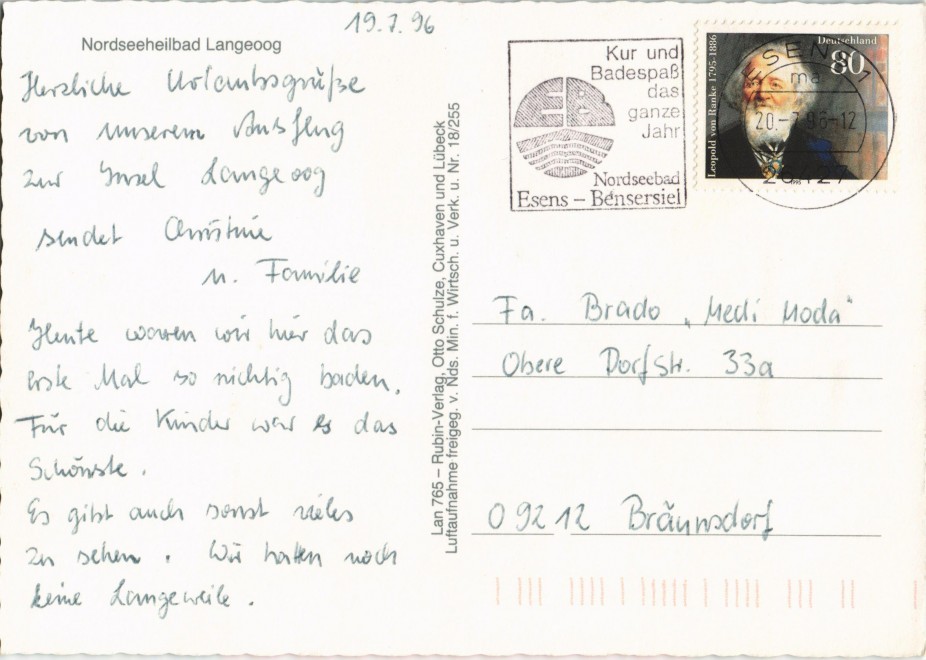 19.7.96
Nordseeheilbad Langeoog
Herzliche Urlaubsgrüße
von unserem Ausflug
zur Insel Langeoog
sendet Christine
u. Familie
Heute waren wir hier das
erste Mal so richtig baden.
Für die Kinder war es das
Schönste.
Es gibt auch sonst vieles
zu sehen. Wir hatten noch
keine Langeweile.
Lan 765 – Rubin-Verlag, Otto Schulze, Cuxhaven und Lübeck
Luftaufnahme freigeg. v. Nds. Min. f. Wirtsch. u. Verk. u. Nr. 18/255
Kur und
Badespaß
das
ganze
Jahr
Nordseebad
Esens – Bensersiel
Leopold von Ranke 1795-1886
Deutschland
80
ESENS 1
ma
20.-7.96-12
26427
Fa. Brado „Medi Moda"
Obere Dorfstr. 33a
09212 Bräunsdorf